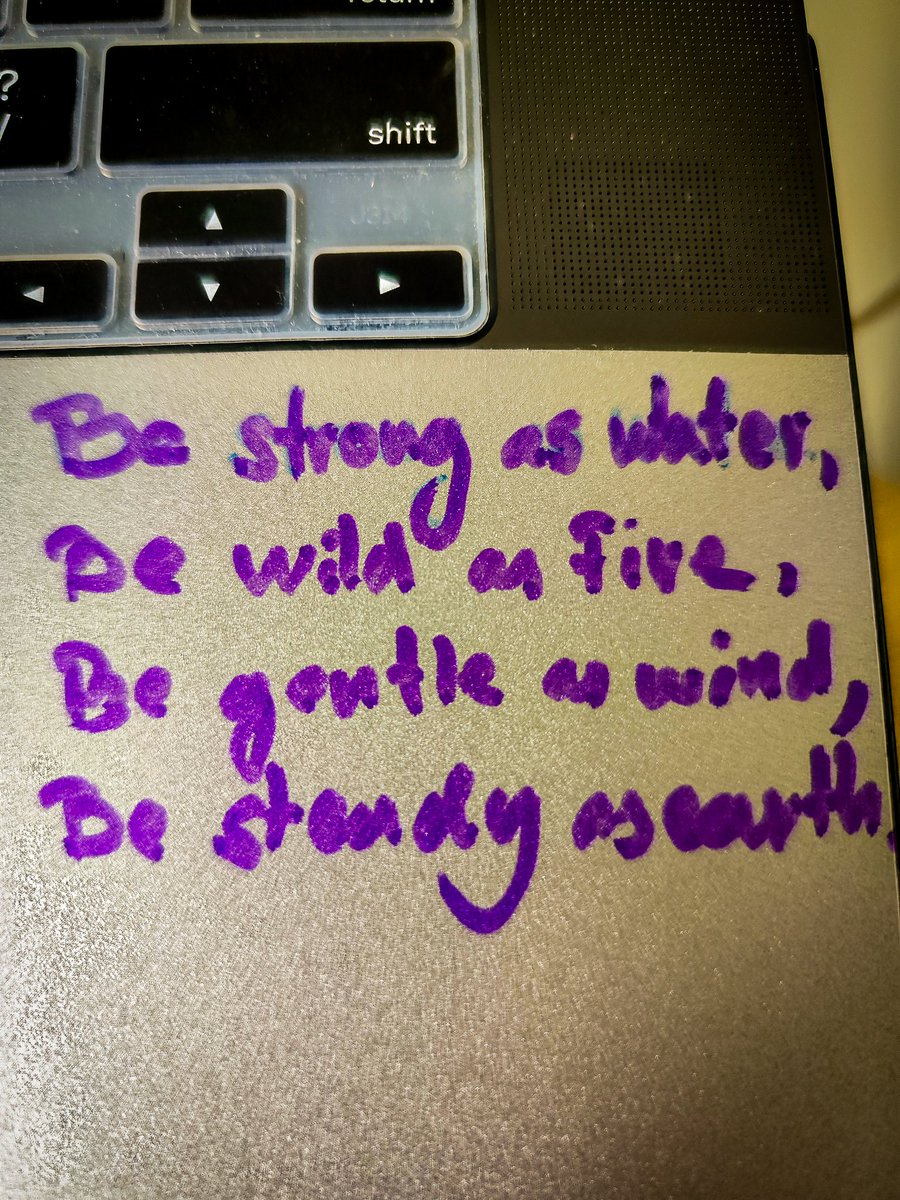 return
?
/
shift
Be strong as water,
Be wild as fire,
Be gentle as wind,
Be steady as earth.